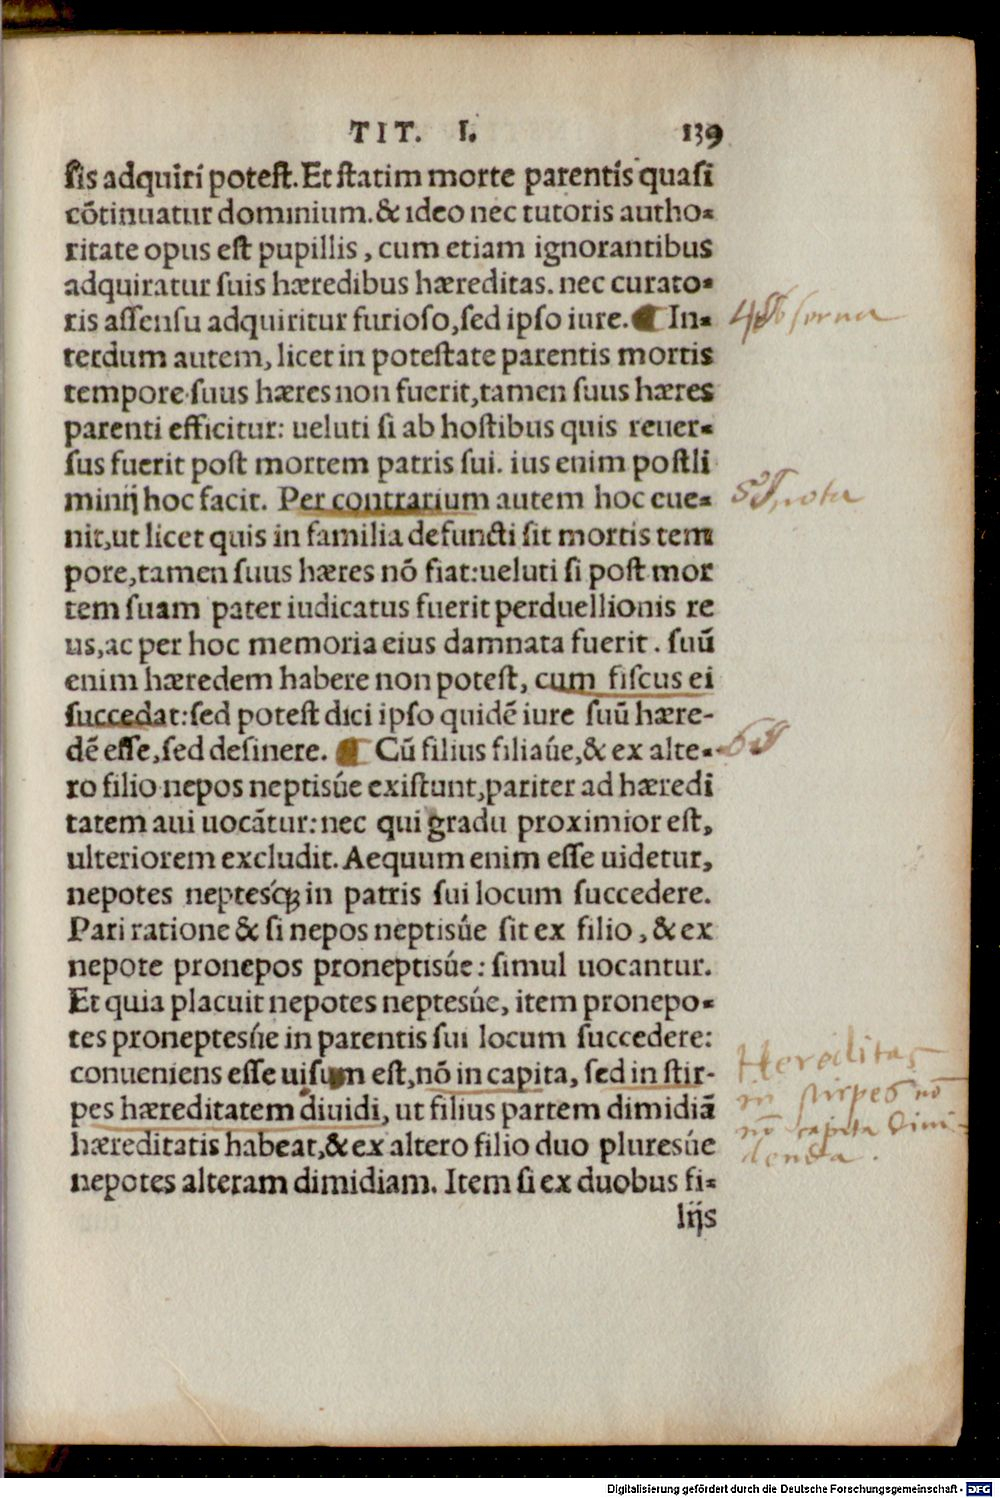 TIT. I. 139
sis adquiri potest. Et statim morte parentis quasi
cõtinuatur dominium. & ideo nec tutoris autho-
ritate opus est pupillis, cum etiam ignorantibus
adquiratur suis hæredibus hæreditas. nec curato-
ris assensu adquiritur furioso, sed ipso iure. ¶ In-
4 § Obserua
terdum autem, licet in potestate parentis mortis
tempore suus hæres non fuerit, tamen suus hæres
parenti efficitur: ueluti si ab hostibus quis reuer-
sus fuerit post mortem patris sui. ius enim postli
minij hoc facit. Per contrarium autem hoc eue-
5 § nota
nit, ut licet quis in familia defuncti sit mortis tem
pore, tamen suus hæres nõ fiat: ueluti si post mor
tem suam pater iudicatus fuerit perduellionis re
us, ac per hoc memoria eius damnata fuerit. suũ
enim hæredem habere non potest, cum fiscus ei
succedat: sed potest dici ipso quidẽ iure suũ hære-
dẽ esse, sed desinere. ¶ Cũ filius filiaúe, & ex alte-
6 §
ro filio nepos neptisúe existunt, pariter ad hæredi
tatem aui uocãtur: nec qui gradu proximior est,
ulteriorem excludit. Aequum enim esse uidetur,
nepotes neptesq́; in patris sui locum succedere.
Pari ratione & si nepos neptisúe sit ex filio, & ex
nepote pronepos proneptisúe: simul uocantur.
Et quia placuit nepotes neptesúe, item pronepo-
tes proneptesúe in parentis sui locum succedere:
conueniens esse uisum est, nõ in capita, sed in stir-
pes hæreditatem diuidi, ut filius partem dimidiã
hæreditatis habeat, & ex altero filio duo pluresúe
nepotes alteram dimidiam. Item si ex duobus fi-
lijs
Hereditas
in stirpes nõ
nõ capita diui-
denda.
Digitalisierung gefördert durch die Deutsche Forschungsgemeinschaft - DFG